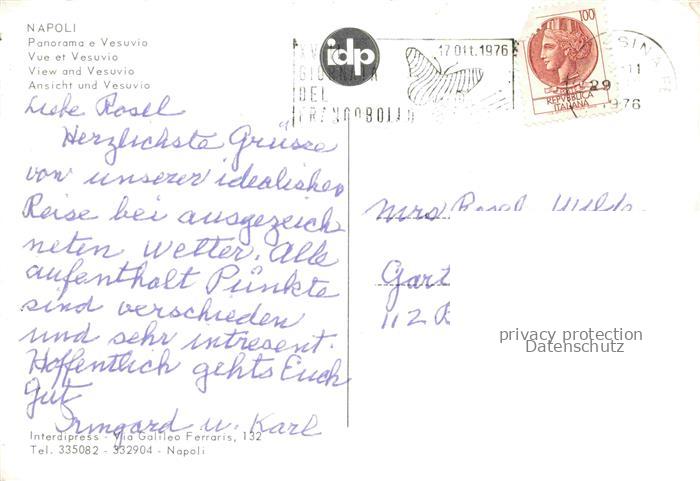 NAPOLI
Panorama e Vesuvio
Vue et Vesuvio
View and Vesuvio
Ansicht und Vesuvio
idp
17 Ott. 1976
GIORNATA
DEL
FRANCOBOLLO
100
REPUBBLICA
ITALIANA
29
1976
Liebe Rosel
Herzlichste Grüsse
von unserer idealischen
Reise bei ausgezeich
neten Wetter. Alle
aufenthalt Pünkte
sind verschieden
und sehr intresent.
Hoffentlich gehts Euch
Gut
Irmgard u. Karl
Mrs Rosel
Gart
112
privacy protection
Datenschutz
Interdipress - Via Galileo Ferraris, 132
Tel. 335082 - 332904 - Napoli